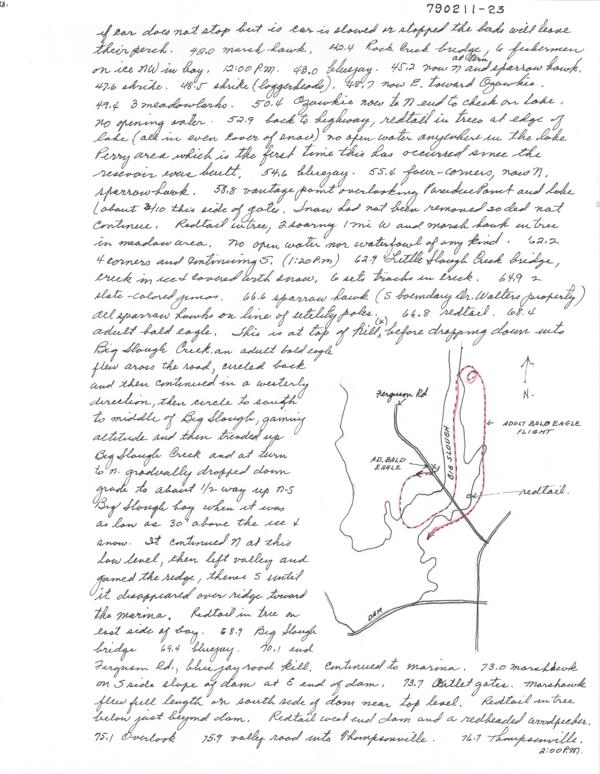 790211-23
if car does not stop but is car is slowed or stopped the birds will leave
their perch. 42.0 marsh hawk. 42.4 Rock Creek bridge, 6 fishermen
on ice NW in bay. 12:00 P.M. 43.0 bluejay. 45.2 now N and sparrow hawk.
47.6 shrike. 48.5 shrike (loggerheads). 48.7 now E. toward Ozawkie.
49.4 3 meadowlarks. 50.4 Ozawkie now to N end to check on lake.
no opening water. 52.9 back to highway, redtail in trees at edge of
lake (all in even cover of snow) no open water anywhere in the lake
Perry area which is the first time this has occurred since the
resevoir was built. 54.6 bluejay. 55.4 four-corners, now N.
sparrow hawk. 58.8 vantage point overlooking Paradise Point and lake
(about 2/10 this side of gate. Snow had not been removed so ded not
continue. Redtail in tree, 2 soaring 1 mi W and marsh hawk in tree
in meadow area. No open water nor waterfowl of any kind. 62.2
4 corners and continuing S. (1:20 P.M) 62.9 Little Slough Creek bridge,
creek in ice & covered with snow, 6 sets tracks in creek. 64.9 2
slate-colored juncos. 66.6 sparrow hawk (S boundary Dr. Walters property)
all sparrow hawks on line of utility poles. 66.8 redtail. 68.4
adult bald eagle. This is at top of hill (x), before dropping down into
Big Slough Creek. an adult bald eagle
flew aross the road, circled back
and then continued in a westerly
direction, then circle to south
to middle of Big Slough, gaining
altitude and then trended up
Big Slough Creek and at turn
to N. gradually dropped down
grade to about 1/2 way up N-S
Big Slough bay when it was
as low as 30' above the ice &
snow. It continued N at this
low level, then left valley and
gained the ridge, thence S until
it disappeared over ridge toward
the marina. Redtail in tree on
east side of bay. 68.9 Big Slough
bridge 69.4 bluejay. 70.1 end
Ferguson Rd, blue jay road kill. Continued to marina. 73.0 marshhawk
on S side slope of dam at E end of dam. 73.7 Outlet gates. Marshawk
flew full length on south side of dam near top level. Redtail in tree
below just beyond dam. Redtail west end dam and a redheaded woodpecker.
75.1 Overlook 75.9 valley road into Thompsonville. 76.7 Thompsonville.
2:00 P.M.
Ferguson Rd
N.
BIG SLOUGH
ADULT BALD EAGLE
FLIGHT
AD. BALD
EAGLE
x
redtail.
DAM